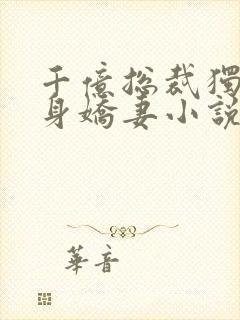 千億總裁獨
身嬌妻小說
華音